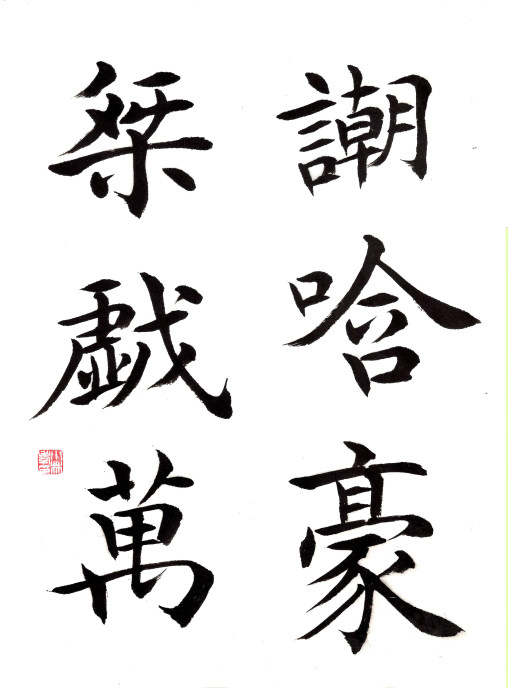 謿唅豪
桀戯萬